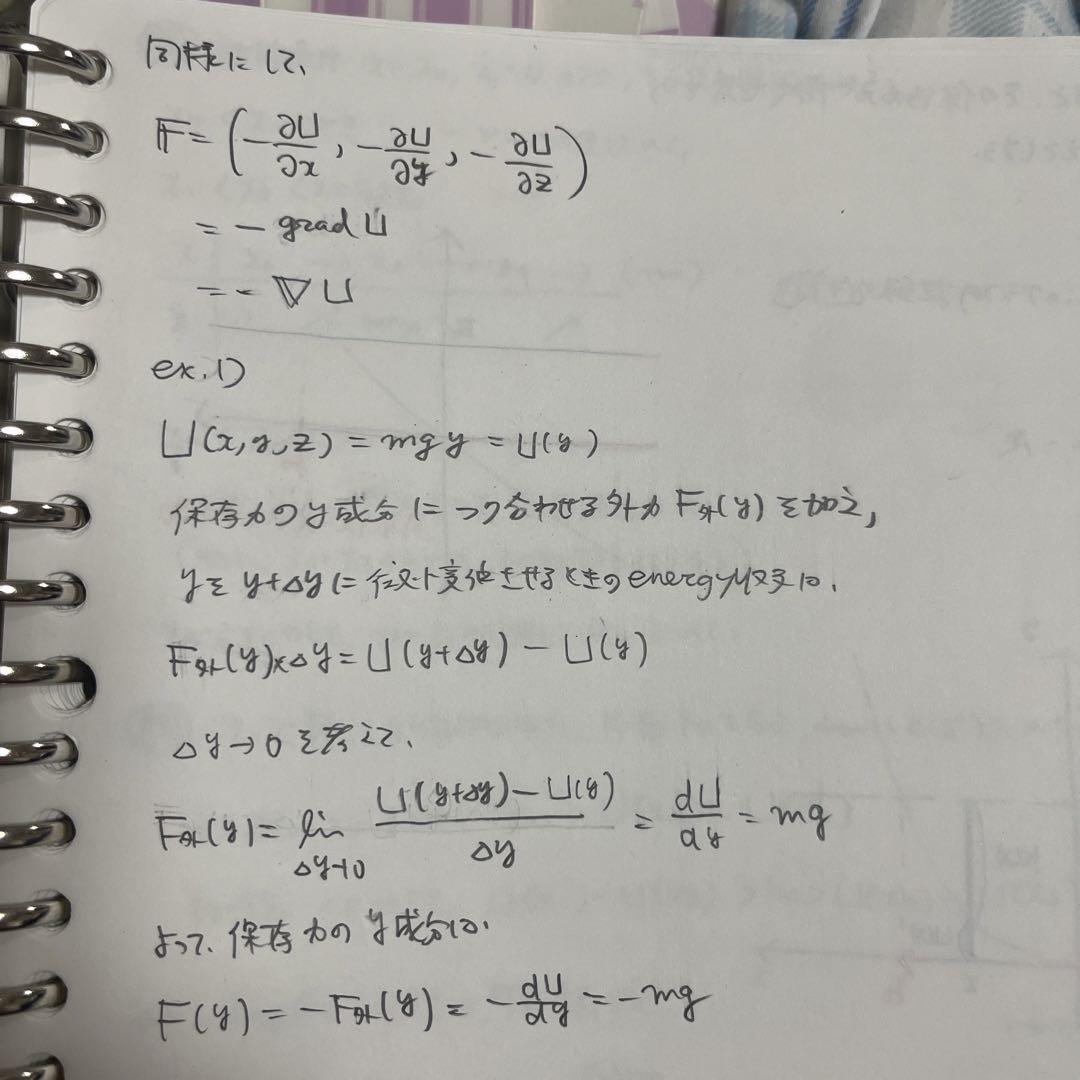 同様にして、
F = (-∂U/∂x, -∂U/∂y, -∂U/∂z)
= - grad U
= - ∇U
ex.1)
U(x,y,z) = mgy = U(y)
保存力のy成分につり合わせる外力 F外(y) を加え,
yを y+Δyに 変位させるときのenergy収支は、
F外(y)×Δy = U(y+Δy) - U(y)
Δy→0 を考えて、
F外(y) = lim Δy→0 (U(y+Δy) - U(y))/Δy = dU/dy = mg
よって、保存力のy成分は、
F(y) = -F外(y) = -dU/dy = -mg